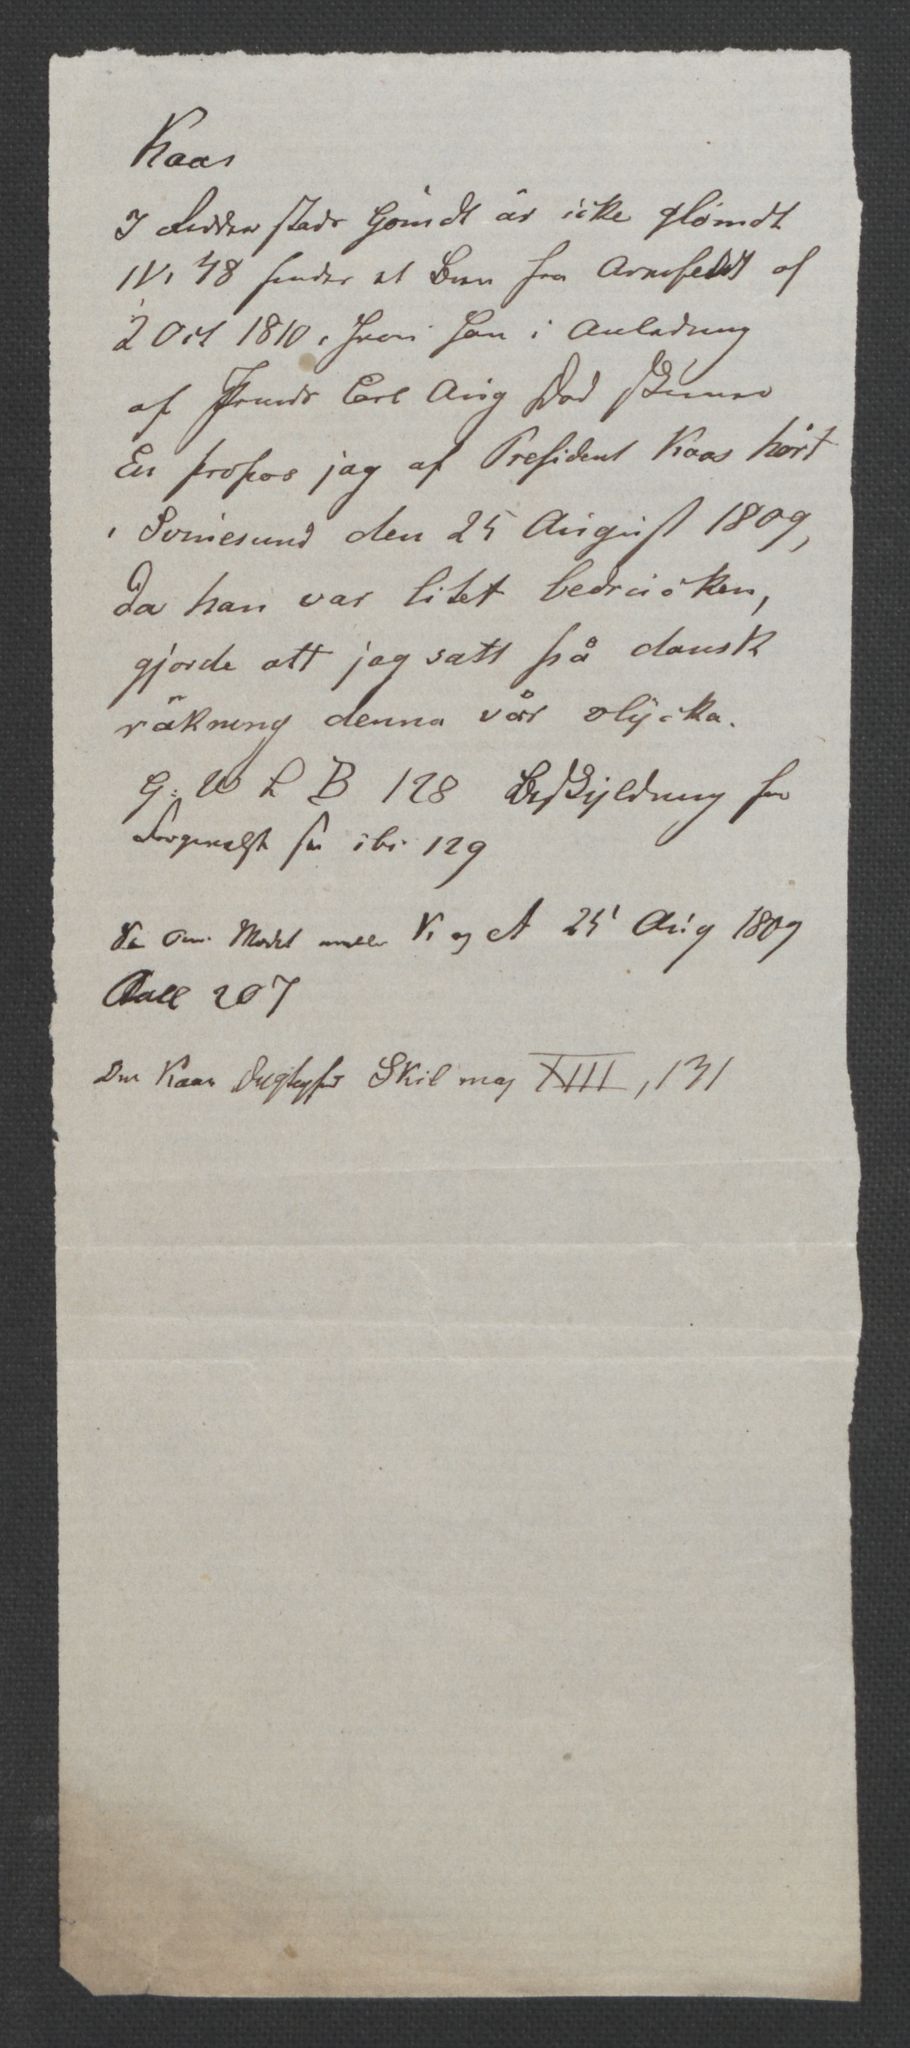 Kaas
I Ridderstads Gömdt är icke glömdt
IV, 48 findes et Brev fra Armfeldt af
2 Oct 1810, hvori han i Anledning
af Prinds Carl Aug Død skriver
En propos jag af President Kaas hört
i Svinesund den 25 August 1809,
da han var litet bedruöken,
gjorde att jag satt på dansk
räkning denna vår olÿcka.
G: W L B 128 Beskyldning for
ibi 129
om Mødet mellem K. og A 25 Aug 1809
Aall 207
Om Kaas Dygtighed Skil mag XIII, 131